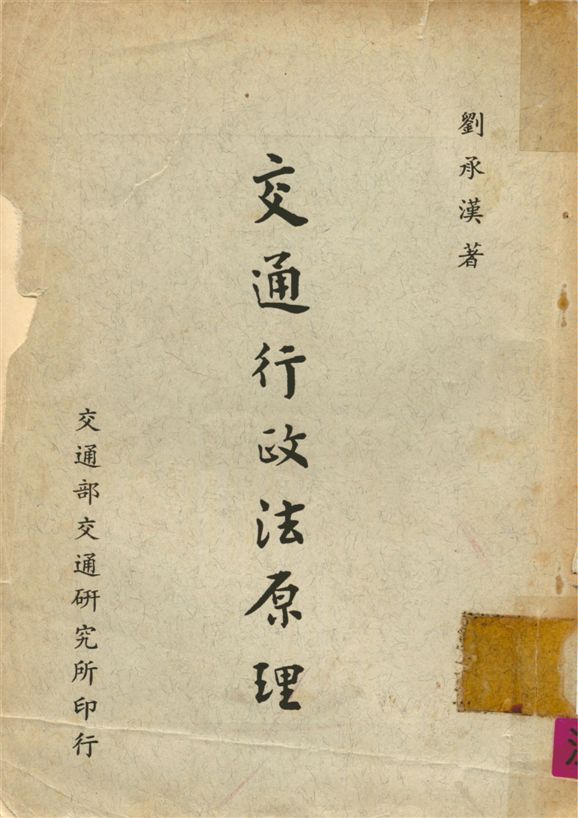 劉承漢著
交通行政法原理
交通部交通研究所印行